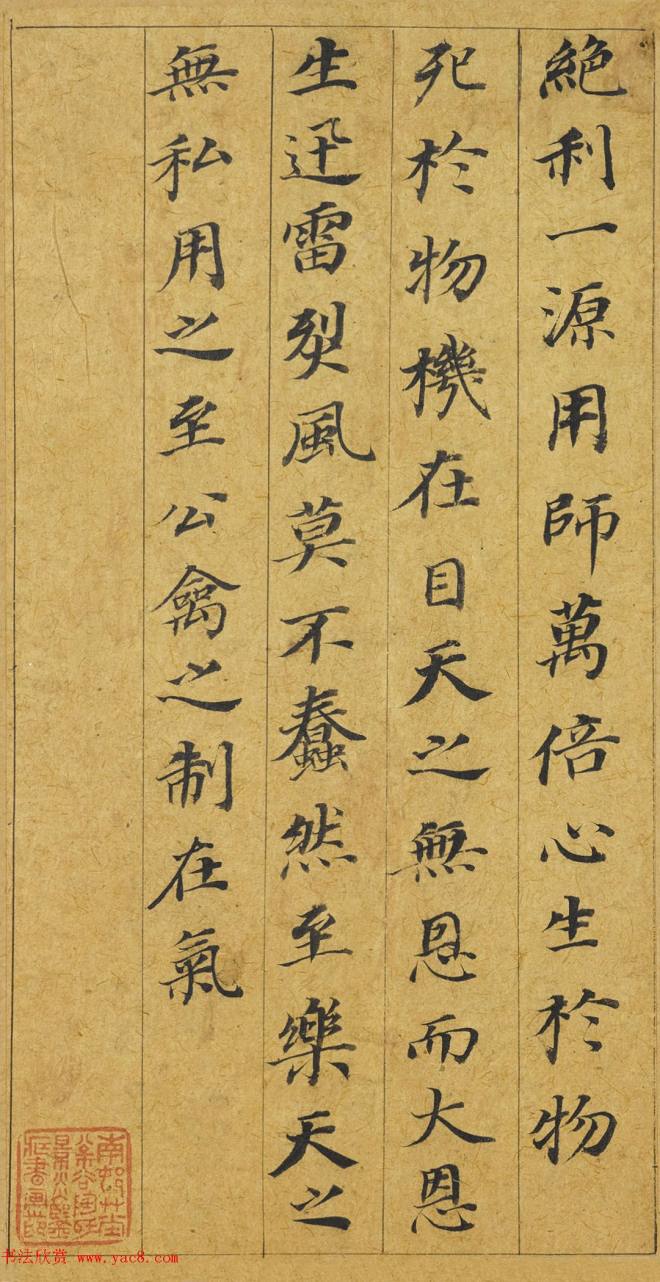 絶利一源用師萬倍心生於物
死於物機在目天之無恩而大恩
生迅雷烈風莫不蠢然至樂天之
無私用之至公禽之制在氣
书法欣赏 www.yac8.com